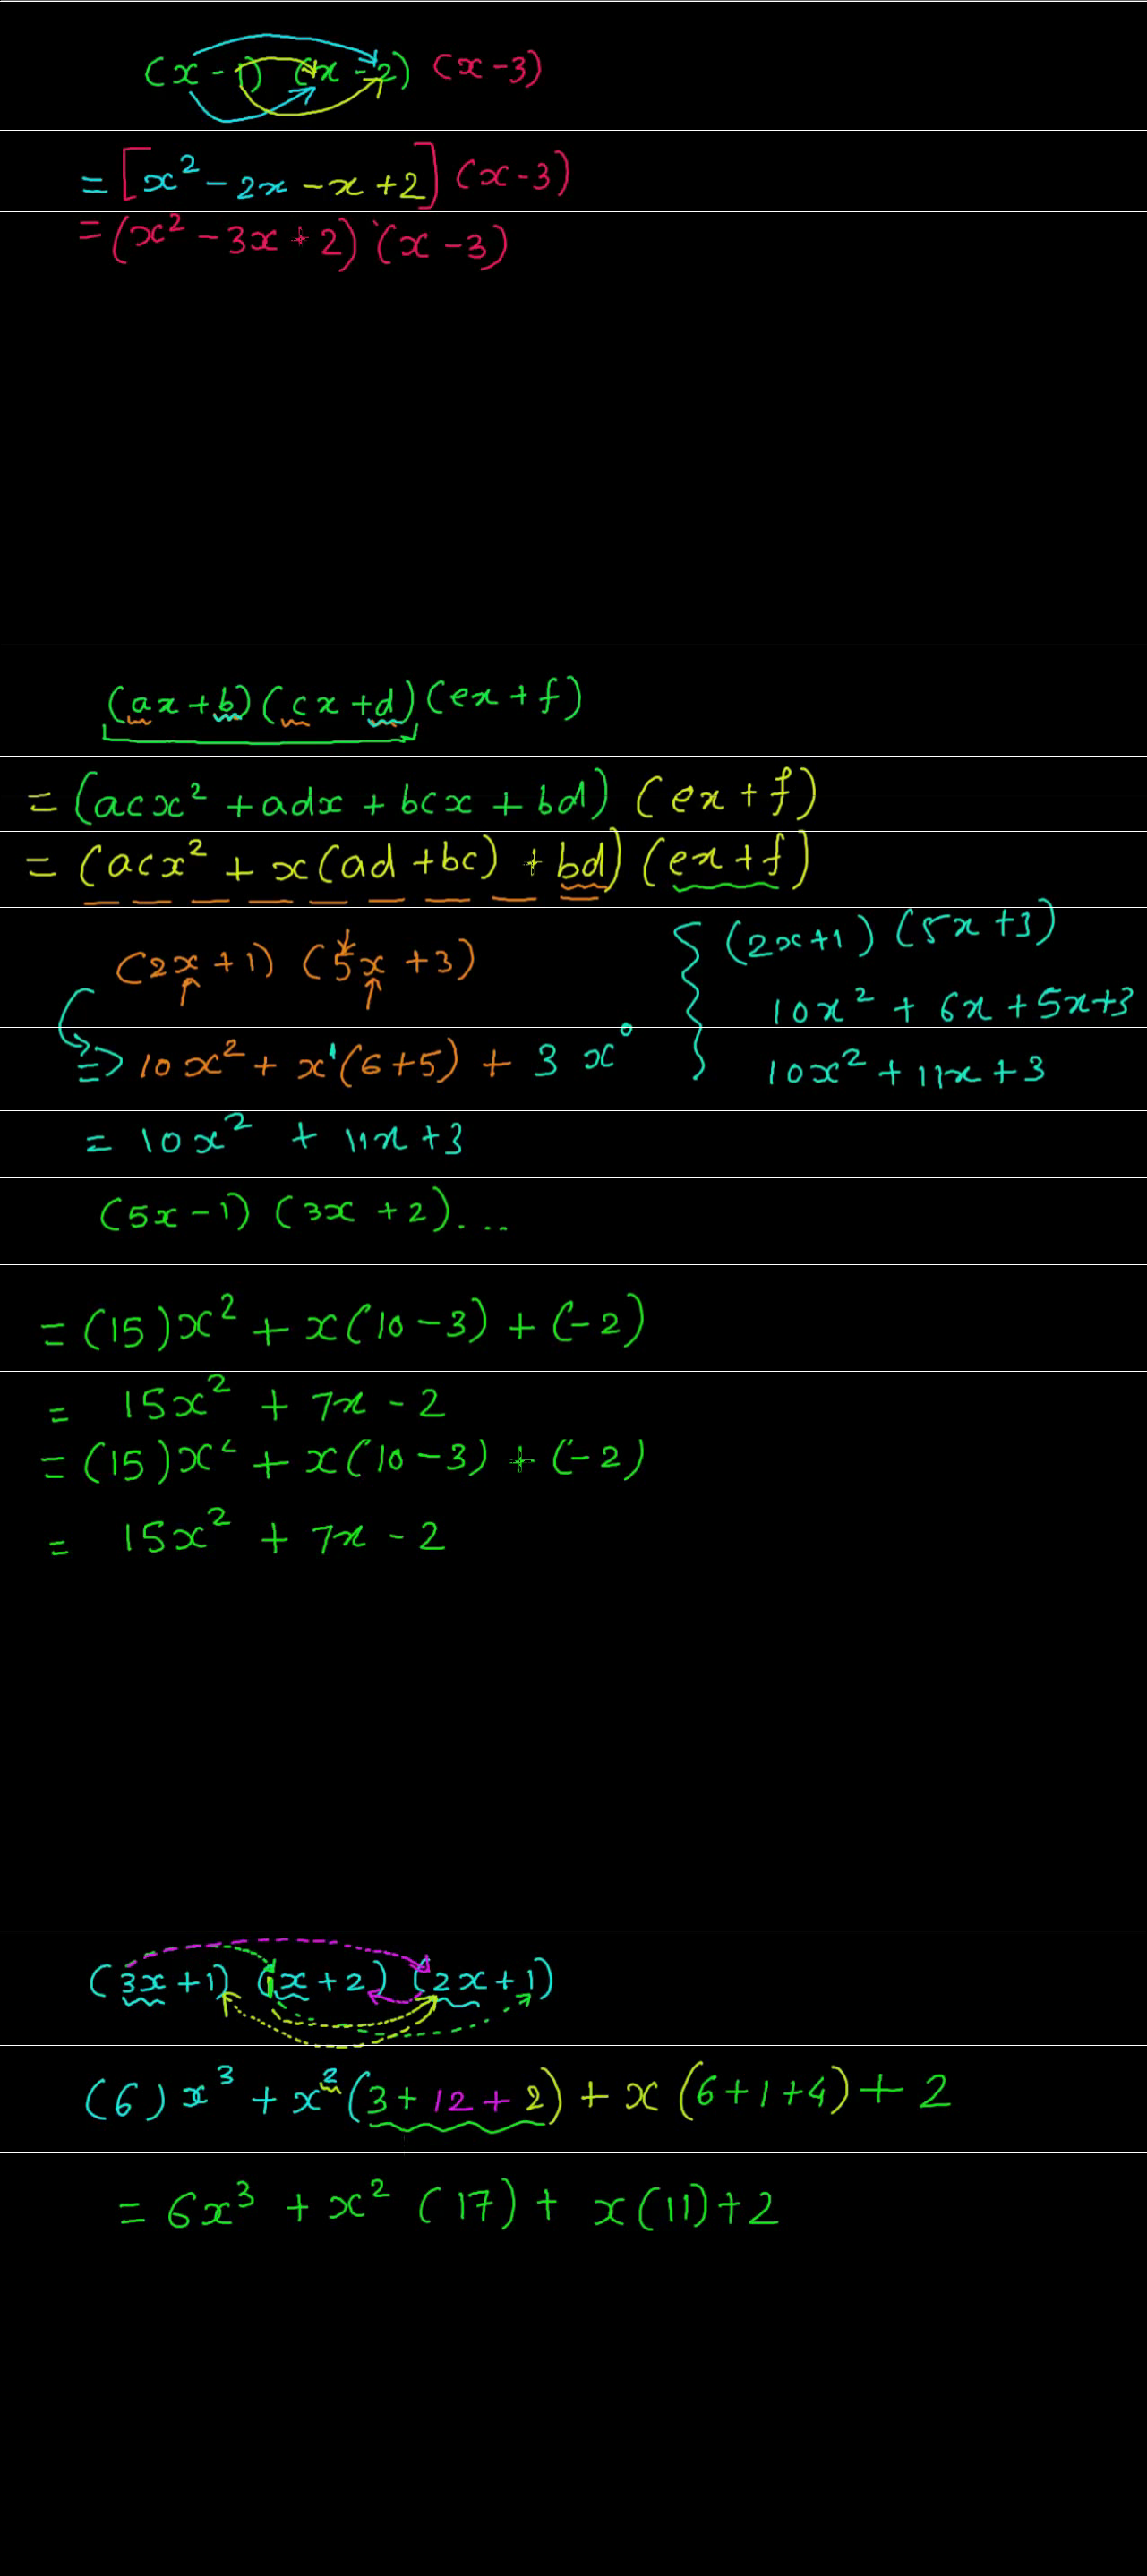 (x - 1) (x - 2) (x - 3)
= [x² - 2x - x + 2] (x - 3)
= (x² - 3x + 2) (x - 3)
(ax + b) (cx + d) (ex + f)
= (acx² + adx + bcx + bd) (ex + f)
= (acx² + x(ad + bc) + bd) (ex + f)
(2x + 1) (5x + 3)
=> 10x² + x¹(6 + 5) + 3x⁰
= 10x² + 11x + 3
{ (2x + 1) (5x + 3)
10x² + 6x + 5x + 3
10x² + 11x + 3
(5x - 1) (3x + 2)...
= (15)x² + x(10 - 3) + (-2)
= 15x² + 7x - 2
= (15)x² + x(10 - 3) + (-2)
= 15x² + 7x - 2
(3x + 1) (x + 2) (2x + 1)
(6)x³ + x²(3 + 12 + 2) + x(6 + 1 + 4) + 2
= 6x³ + x²(17) + x(11) + 2